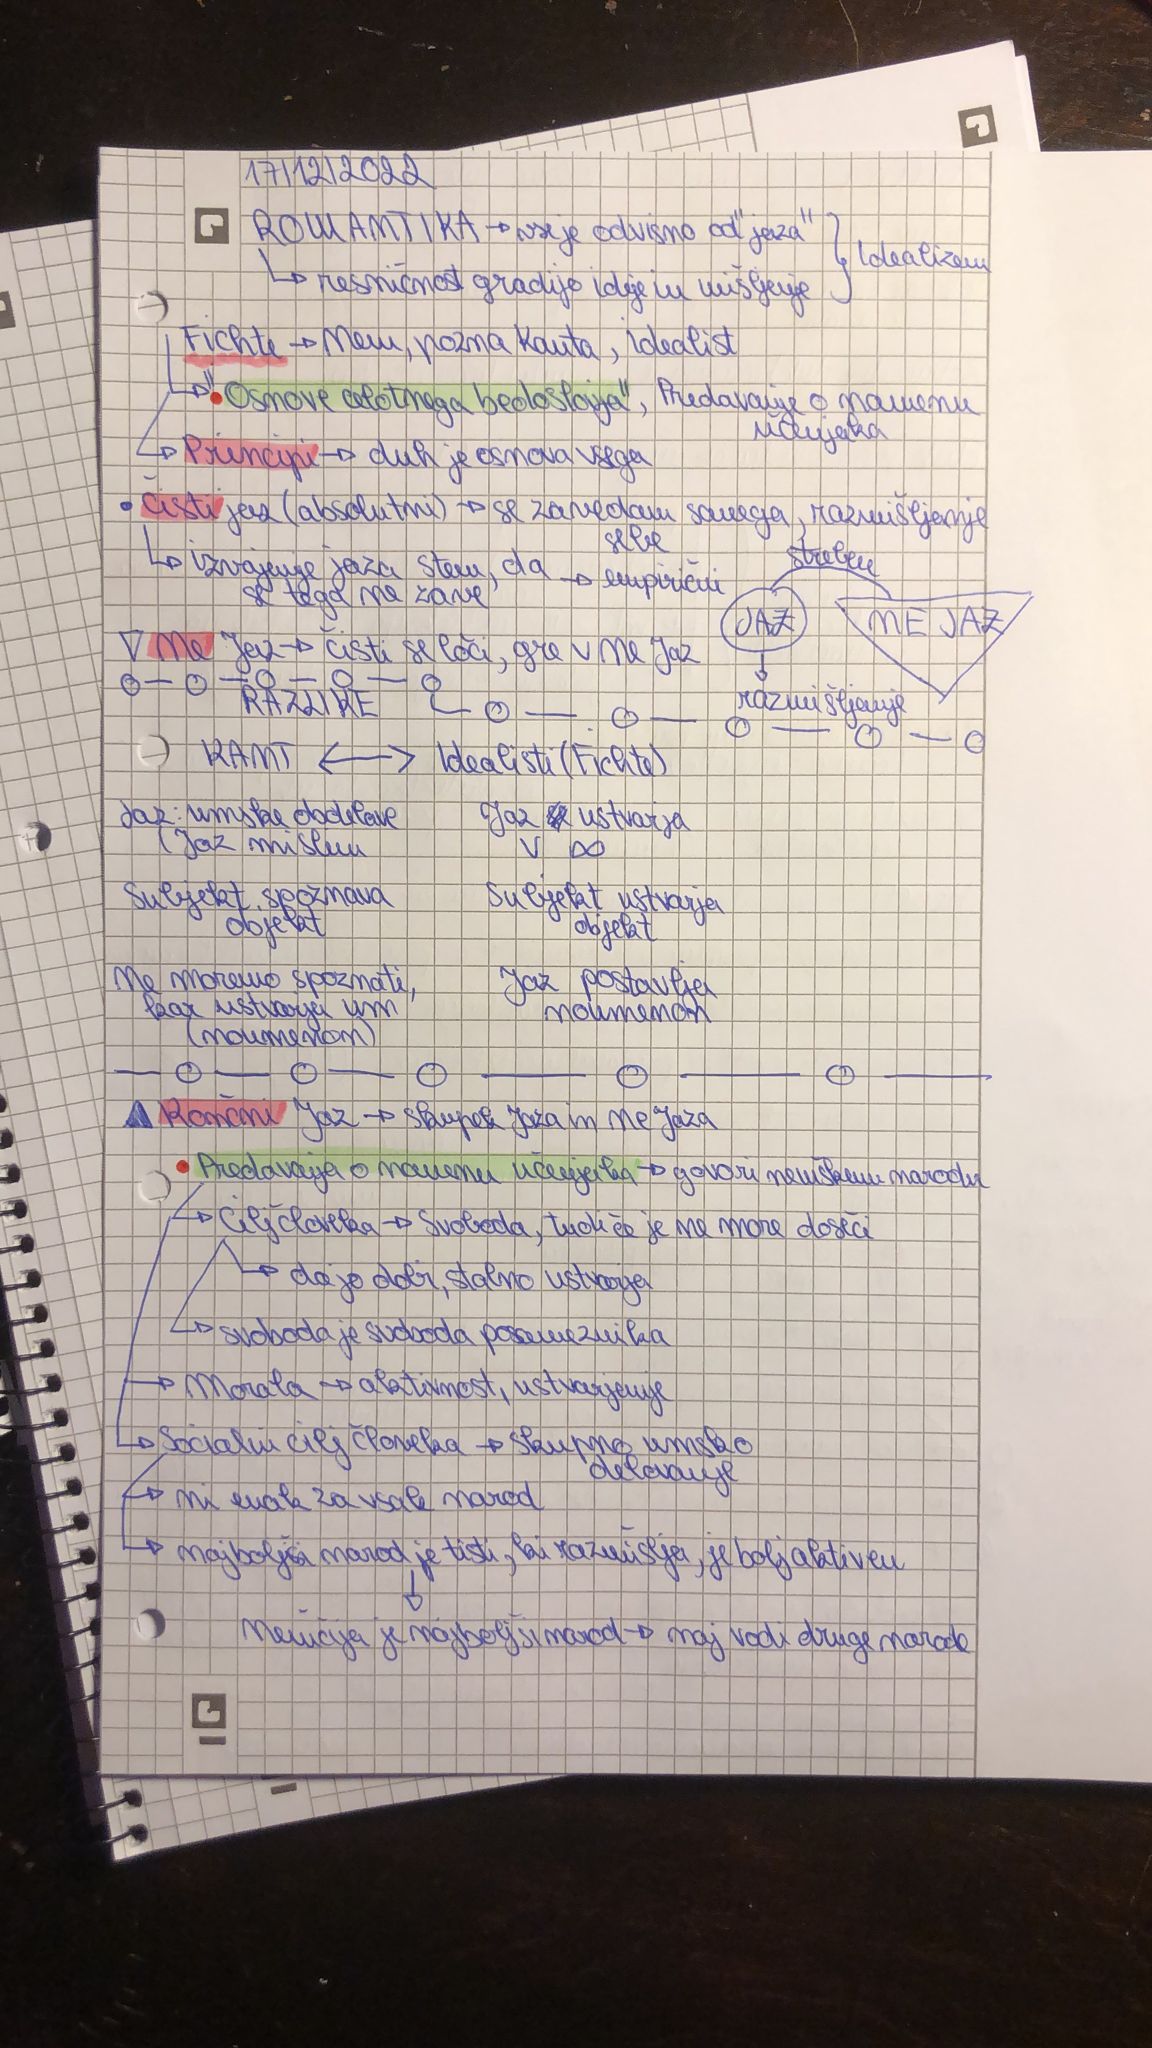 17/12/2022
ROMANTIKA → vse je odvisno od "jaza"
Idealizem
↳ resničnost gradijo ideje in mišljenje
Fichte → Nem, pozna Kanta, idealist
↳ "Osnove celotnega vedoslovja", Predavanje o namenu
učenjaka
↳ Principi → duh je osnova vsega
• Čisti jaz (absolutni) → se zavedam samega, razmišljanje
sebe
↳ izvajanje jaza s tem, da → empirični
se tega ne zave
streben
JAZ
NE JAZ
▽ Ne Jaz → čisti se loči, gre v ne Jaz
RAZLIKE
razmišljanje
KANT ↔ Idealisti (Fichte)
Jaz: umske dodelave
(Jaz mislim
Jaz ustvarja
v ∞
Subjekt spoznava
objekt
Subjekt ustvarja
objekt
Ne moremo spoznati,
kar ustvarja um
(noumenon)
Jaz postavlja
noumenon
▲ Končni Jaz → skupek Jaza in ne Jaza
• Predavanja o namenu učenjaka → govori nemškemu narodu
↳ Cilj človeka → Svoboda, tudi če je ne more doseči
↳ da jo dobi, stalno ustvarja
↳ svoboda je svoboda posameznika
→ Morala → aktivnost, ustvarjanje
↳ Socialni cilj človeka → skupno umsko
delovanje
→ ni enak za vsak narod
→ najboljši narod je tisti, ki razmišlja, je bolj aktiven
↓
Nemčija je najboljši narod → naj vodi druge narode